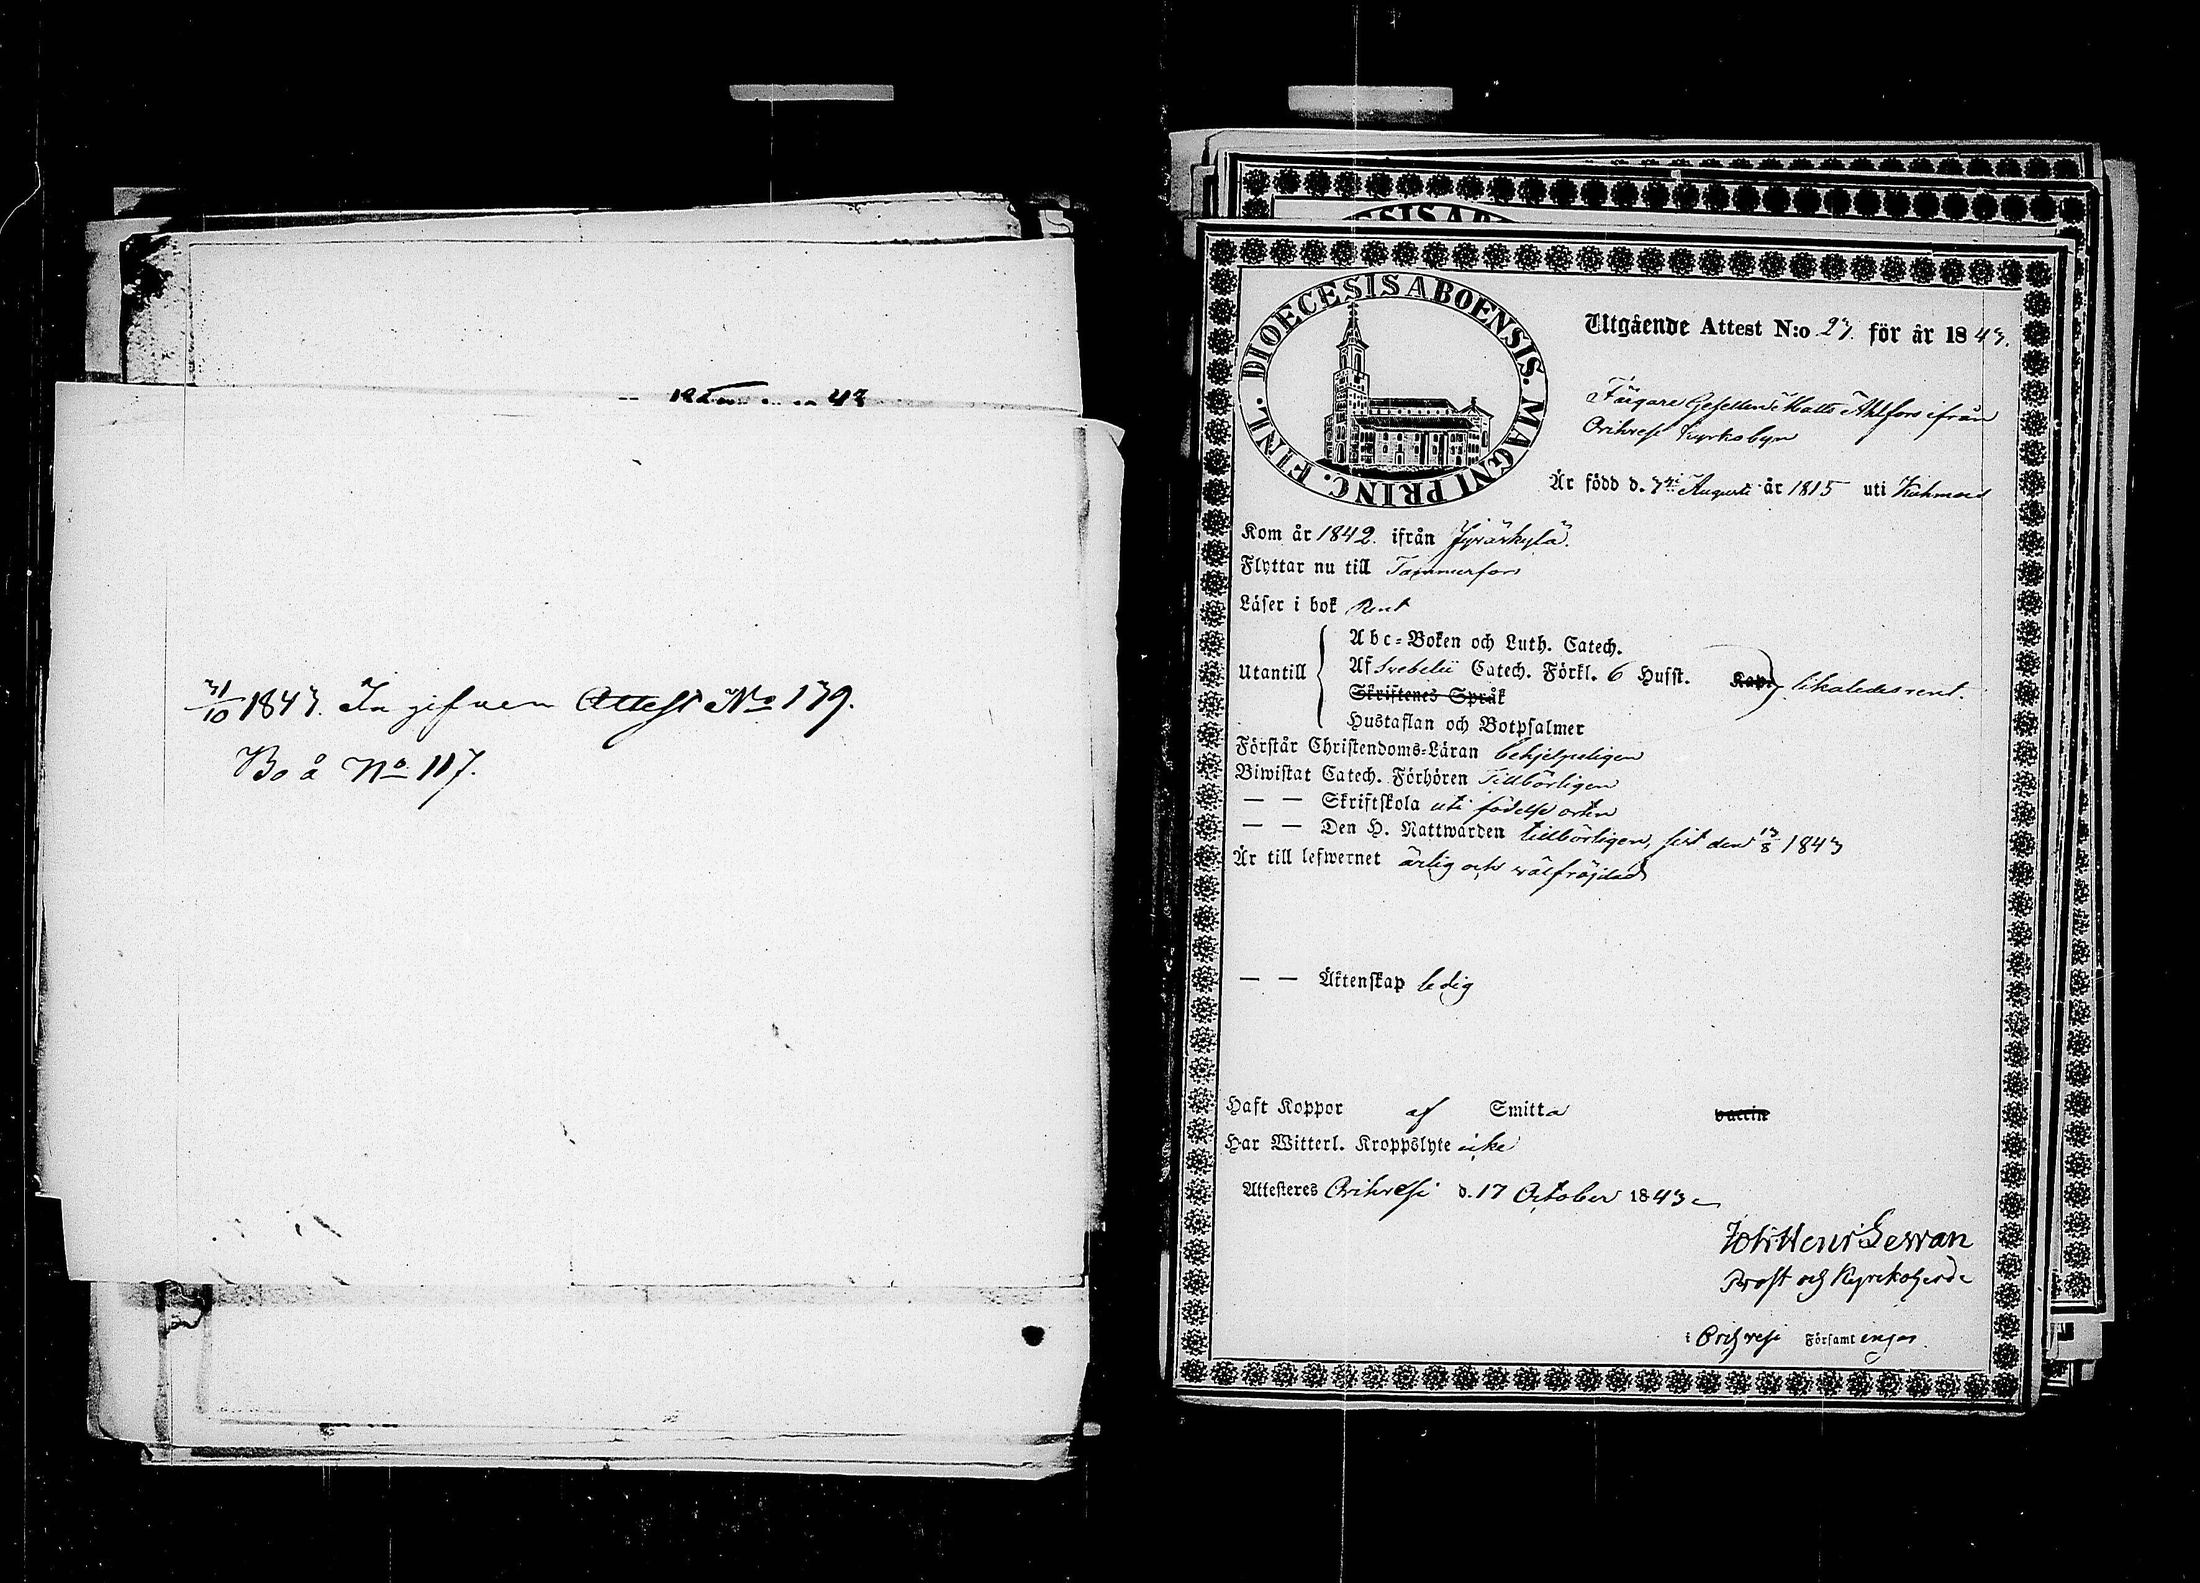 31/10 1843. Ingifven Attest No 139.
Bo å No 117.
DIOECESIS ABOENSIS. MAGNI PRINC. FINL.
Utgående Attest N:o 23. för år 1843.
Färgare Gesellen Matts Ahlfors ifrån
Orihvesi Kyrkoby
Är född d. 7de Augusti år 1815 uti Kuhmois
Kom år 1842. ifrån Jyväskylä.
Flyttar nu till Tammerfors
Läser i bok Rent
Utantill
Abc-Boken och Luth. Catech.
Af Svebelii Catech. Förkl. 6 Hufst. Kap. likaledes rent.
Skriftenes Språk
Hustaflan och Botpsalmer
Förstår Christendoms-Läran behjelpeligen
Biwistat Catech. Förhören Tillbörligen
— — Skriftskola uti födelse orten
— — Den H. Nattwarden tillbörligen, sist den 13/8 1843
Är till lefwernet ärlig och välfrägdad
— — Äktenskap ledig
Haft Koppor af Smitta vaccin
Har Witterl. Kroppslyte icke
Attesteres Orihvesi d. 17 October 1843
Joh: Henr:
Prost och Kyrkoherde
i Orihvesi Församlingar.